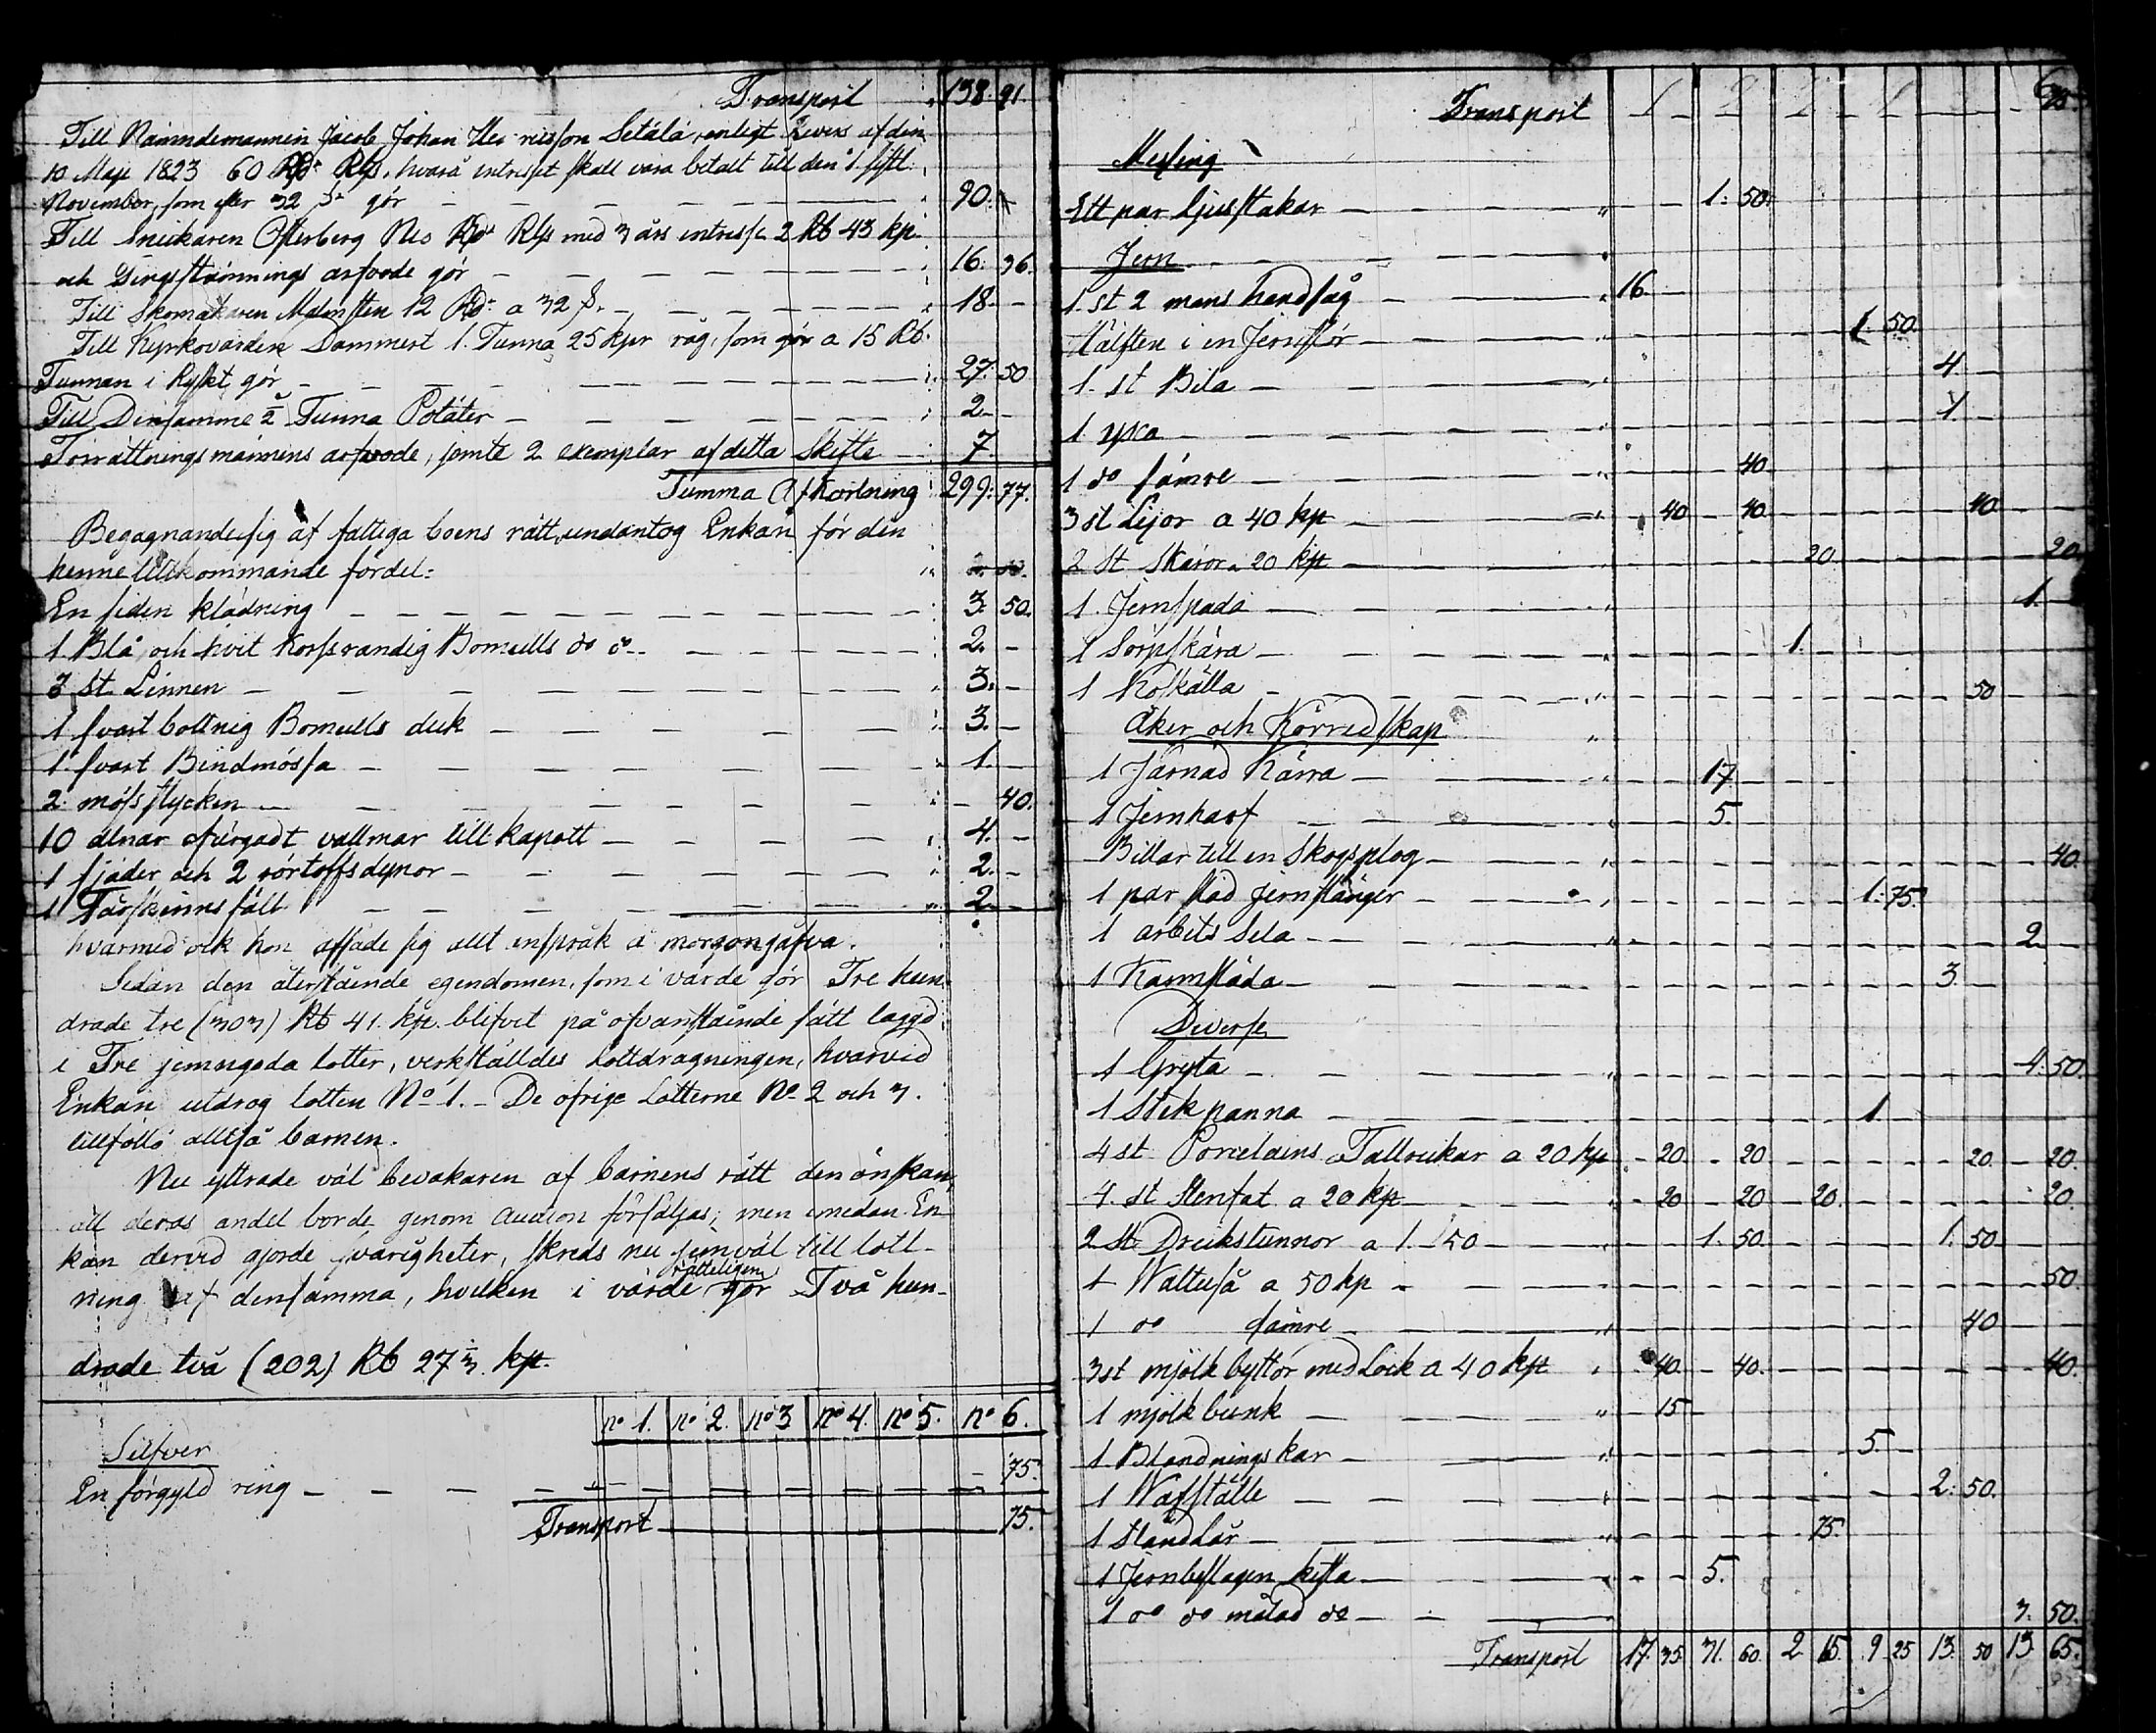 Transport 138. 91.
Till Nämndemannen Jacob Johan Setälä, enligt Revers af den
10 Maji 1823 60 Rd Rgs, hvarå intresset skall vara betalt till den 1 sistl.
November, som efter 32 s. gör 90. -
Till Snickaren Österberg Rd Rgs med 3 års intresse 2 Rb 43 kp.
och Tingsstämnings arfvode gör 16. 36.
Till Skomakaren Malmsten 12 Rd. a 32 s. 18. -
Till Kyrkovärden Dammert 1. Tunna 25 kpr råg, som gör a 15 Rb.
Tunnan i Ryskt gör 27. 50
Till Densamme ½ Tunna Potäter 2. -
Förrättningsmännens arfvode, jemte 2 exemplar af detta Skifte 7.
Summa Afkortning 299. 77.
Begagnande sig af fattiga boens rätt, undantog Enkan för den
henne tillkommande fördel:
En siden klädning 3. 50.
1 Blå och hvit Korssrandig Bomulls do do 2. -
3 st. Linnen 3. -
1 svart bottnig Bomulls duk 3. -
1 svart Bindmössa 1. -
2 möss stycken - 40.
10 alnar ofärgadt vallmar till kapott 4. -
1 fjäder och 2 dynor 2. -
1 Fårskinns fäll 2. -
hvarmed ock hon afsade sig allt anspråk å morgongåfva.
Sedan den återstående egendomen, som i värde gör Tre hun-
drade tre (303) Rb 41. kp. blifvit på ofvanstående sätt lagd
i Tre jemngoda lotter, verkställdes lottdragningen, hvarvid
Enkan utdrog lotten No 1. - De öfrige Lotterne No 2 och 3.
tillföllo alltså barnen.
Nu yttrade väl bevakaren af barnens rätt den önskan,
att deras andel borde genom auction försäljas; men emedan En-
kan dervid gjorde svårigheter, skreds nu jemväl till lott-
ning af densamma, hvilken i värde rätteligen gör Två hun-
drade två (202) Rb 27⅓ kp.
no 1. no 2. no 3 no 4. no 5. no 6.
Silfver
En förgyld ring - 75.
Transport 75.
Transport 75.
Messing
Ett par ljusstakar 1. 50.
Jern
1. st 2 mans handsåg 16. -
Hälften i en Jernstör 1. 50
1. st Bila 4. -
1 yxa 1. -
1 do sämre 40.
3 st Lijor a 40 kp 40 - 40 - 40
2 st Skäror a 20 kp 20. 20.
1. Jernspada 1. -
1 Sörpskära 1.
1 Koskälla 50
Åker och Körredskap
1 Järnad Kärra 17
1 Jernharf 5.
Billar till en Skogsplog 40.
1 par städ jernstänger 1. 75.
1 arbets Sela 2. -
1 Karmsläda 3. -
Diverse
1 Gryta 4. 50.
1 Stekpanna 1.
4 st Porcelains Tallrickar a 20 kp - 20. - 20. 20. - 20.
4. st Stenfat a 20 kp - 20 - 20 - 20. 20.
2 st Drickstunnor a 1. 50 1. 50. 1. 50
1 Wattuså a 50 kp 50.
1 do sämre 40
3 st mjölk byttor med Lock a 40 kp 40. - 40. 40.
1 mjölk bunk - 15
1 Blandningskar 5. -
1 Wäfställe 2. 50.
1 Handkar 75.
1 Jernbeslagen kista 5.
1 do do målad do 3. 50.
Transport 17. 35 31. 60. 2 15. 9 25 13. 50 13 65.